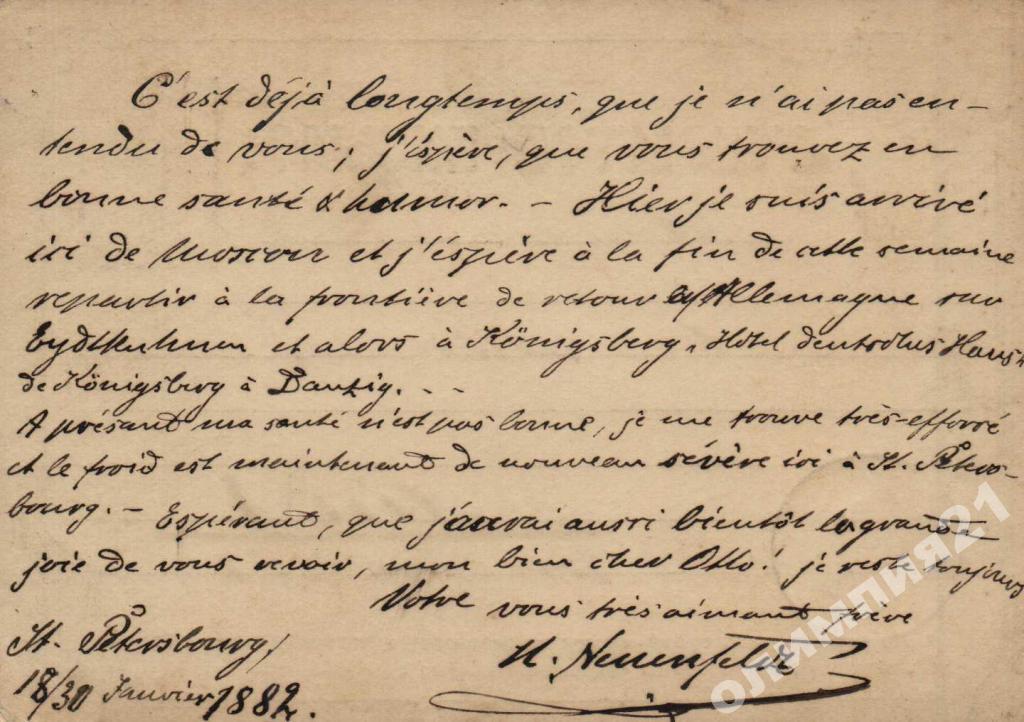 C'est déjà longtemps, que je n'ai pas en-
tendu de vous; j'éspère, que vous trouvez en
bonne santé & humor. - Hier je suis arrivé
ici de Moscou et j'éspère à la fin de cette semaine
repartir à la frontière de retour Allemagne sur
Eydtkuhnen et alors à Königsberg, Hôtel deutsches Haus &
de Königsberg à Danzig. - -
A présant ma santé n'est pas bonne, je me trouve très-efforcé
et le froid est maintenant de nouveau sévère ici à St. Péters-
bourg. - Espérant, que j'aurai aussi bientôt la grande
joie de vous revoir, mon bien cher Otto! je reste toujours
Votre vous très aimant frère
St. Pétersbourg,
H. Neuenfeldt
18/30 Janvier 1882.
ОЛИМПИЯ21